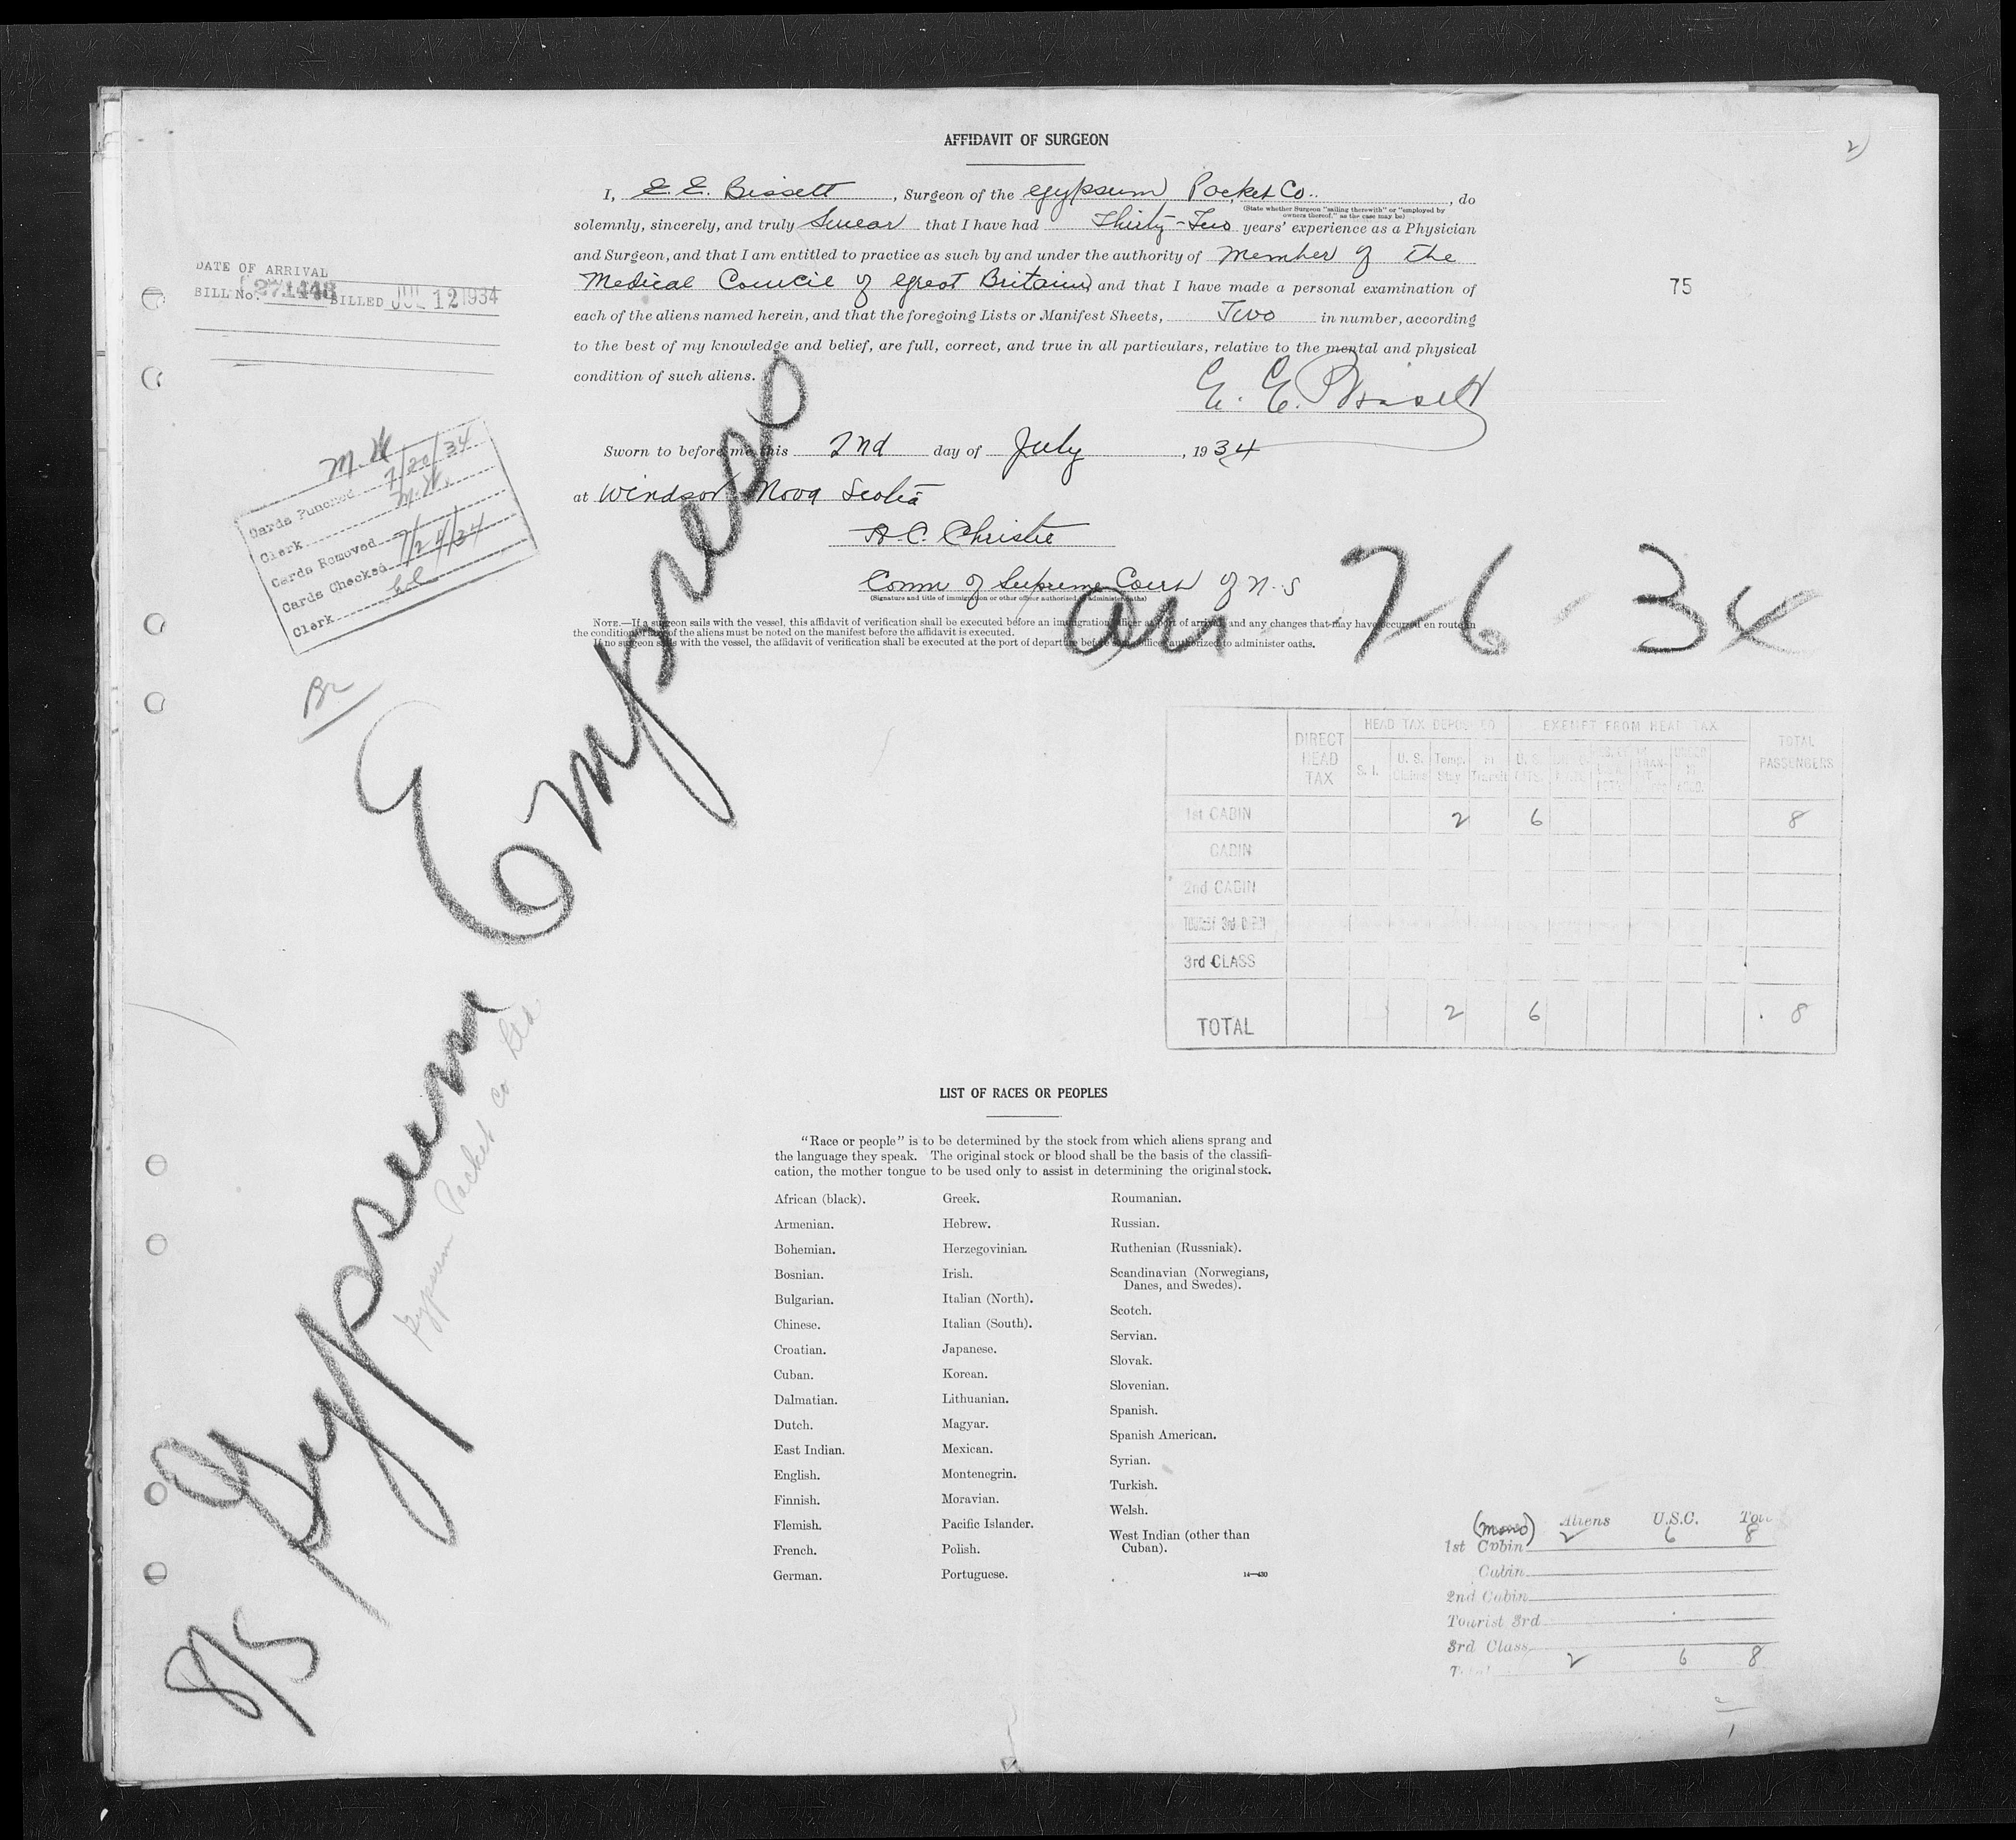 AFFIDAVIT OF SURGEON
2)
I, E. E. Bissett, Surgeon of the Gypsum Packet Co., do
(State whether Surgeon "sailing therewith" or "employed by
owners thereof," as the case may be)
solemnly, sincerely, and truly Swear that I have had Thirty-Two years' experience as a Physician
and Surgeon, and that I am entitled to practice as such by and under the authority of Member of the
Medical Council of Great Britain, and that I have made a personal examination of
each of the aliens named herein, and that the foregoing Lists or Manifest Sheets, Two in number, according
to the best of my knowledge and belief, are full, correct, and true in all particulars, relative to the mental and physical
condition of such aliens.
E. E. Bissett
Sworn to before me this 2nd day of July, 1934
at Windsor Nova Scotia
A. C. Christie
Comm of Supreme Court of N.S
(Signature and title of immigration or other officer authorized to administer oaths)
NOTE.—If a surgeon sails with the vessel, this affidavit of verification shall be executed before an immigration officer at port of arrival, and any changes that may have occurred en route in
the condition of any of the aliens must be noted on the manifest before the affidavit is executed.
If no surgeon sails with the vessel, the affidavit of verification shall be executed at the port of departure before some officer authorized to administer oaths.
DATE OF ARRIVAL
BILL No. 271448 BILLED JUL 12 1934
75
M.W.
Cards Punched 7/20/34
Clerk M.W.
Cards Removed
Cards Checked 7/24/34
Clerk
Br
Arr 7 6 - 34
Gypsum Empress
Gypsum Packet Co Ltd.
8/5
DIRECT HEAD TAX
HEAD TAX DEPOSITED
EXEMPT FROM HEAD TAX
TOTAL PASSENGERS
S. I. U. S. Claims Temp. Stay In Transit U. S. CITS.
1st CABIN 2 6 8
CABIN
2nd CABIN
TOURIST 3rd CABIN
3rd CLASS
TOTAL 2 6 8
LIST OF RACES OR PEOPLES
"Race or people" is to be determined by the stock from which aliens sprang and
the language they speak. The original stock or blood shall be the basis of the classifi-
cation, the mother tongue to be used only to assist in determining the original stock.
African (black).
Armenian.
Bohemian.
Bosnian.
Bulgarian.
Chinese.
Croatian.
Cuban.
Dalmatian.
Dutch.
East Indian.
English.
Finnish.
Flemish.
French.
German.
Greek.
Hebrew.
Herzegovinian.
Irish.
Italian (North).
Italian (South).
Japanese.
Korean.
Lithuanian.
Magyar.
Mexican.
Montenegrin.
Moravian.
Pacific Islander.
Polish.
Portuguese.
Roumanian.
Russian.
Ruthenian (Russniak).
Scandinavian (Norwegians,
Danes, and Swedes).
Scotch.
Servian.
Slovak.
Slovenian.
Spanish.
Spanish American.
Syrian.
Turkish.
Welsh.
West Indian (other than
Cuban).
14—430
Aliens U.S.C. Total
1st Cabin 2 6 8
Cabin
2nd Cabin
Tourist 3rd
3rd Class
Total 2 6 8